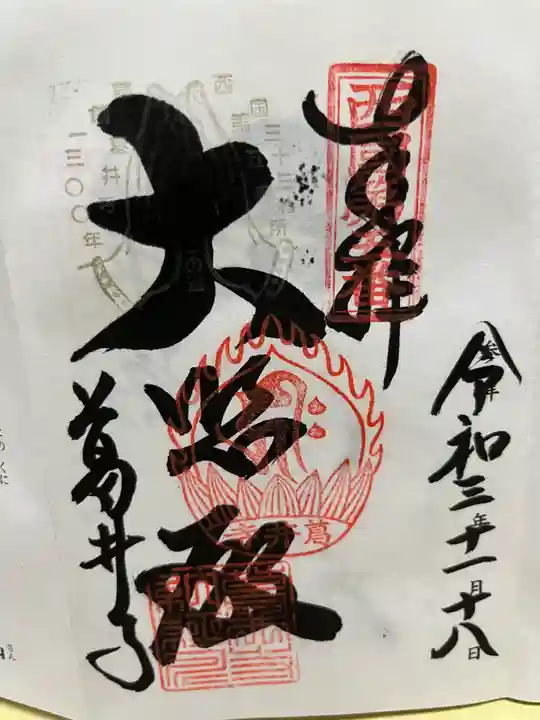 令和三年十一月十八日
奉拝
西国第五番
大悲殿
葛井寺
西国三十三所
一三〇〇年
葛井寺